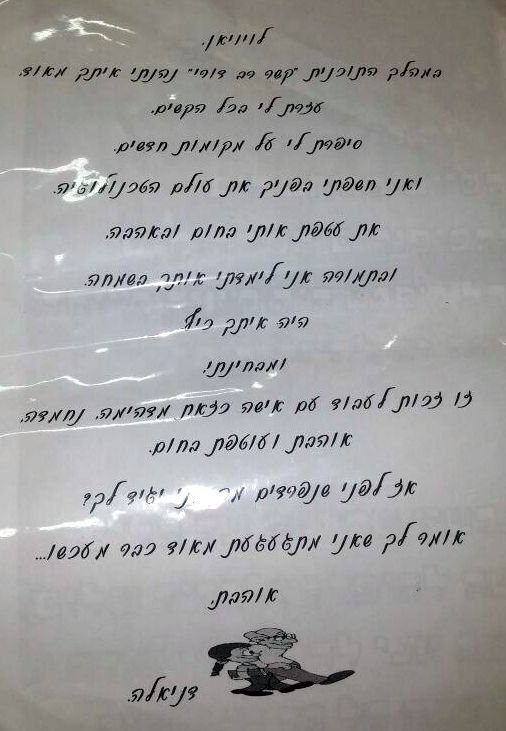 לוויויאן.
במהלך התוכנית "קשר רב דורי" נהנתי איתך מאוד.
עזרת לי בכל הקשים.
סיפרת לי על מקומות חדשים.
ואני חשפתי בפניך את עולם הטכנולוגיה.
את עטפת אותי בחום ובאהבה.
ובתמורה אני לימדתי אותך בשמחה.
היה איתך כיף
ומבחינתי.
זו זכות לעבוד עם אישה כזאת מדהימה, נחמדה,
אוהבת ועוטפת בחום.
אז לפני שנפרדים יגיד לך?
אומר לך שאני מתגעגעת מאוד כבר מעכשו...
אוהבת.
דניאלה.